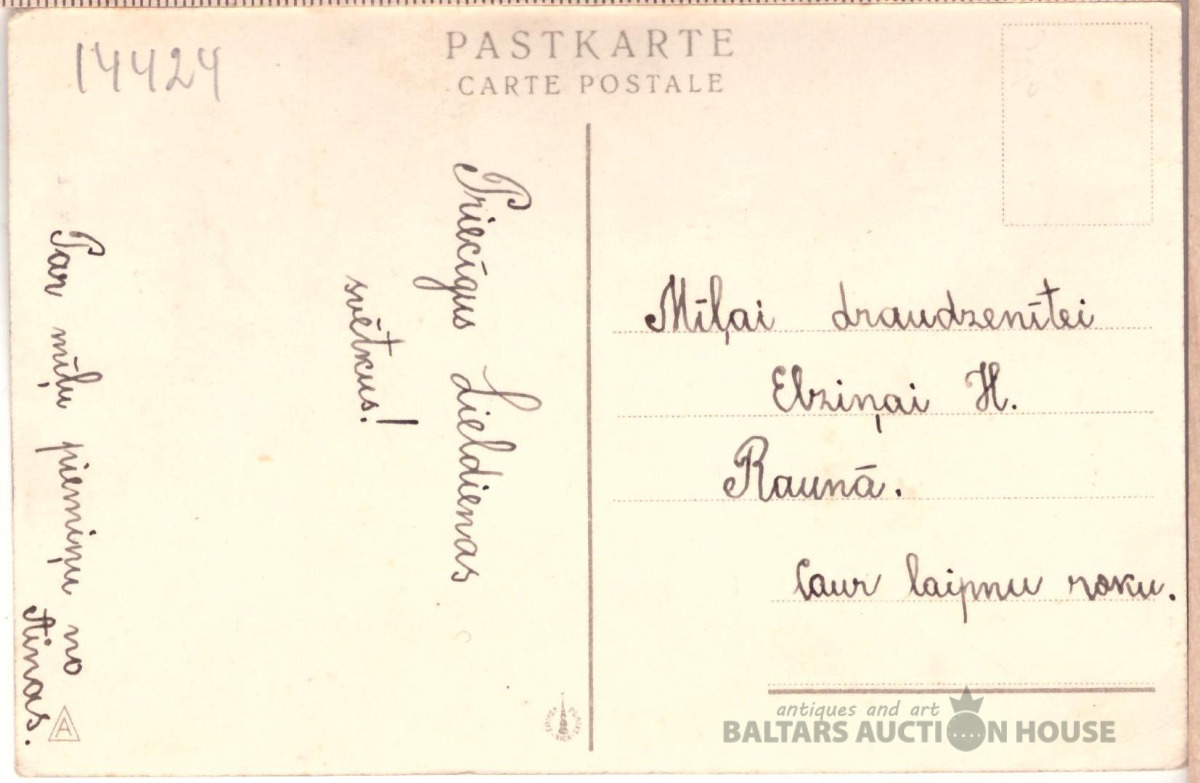 14424
PASTKARTE
CARTE POSTALE
Priecīgus Lieldienas
svētkus!
Par mīļu piemiņu no
Ainas.
Mīļai draudzenītei
Elziņai H.
Raunā.
Caur laipnu roku.
A
antiques and art
BALTARS AUCTION HOUSE